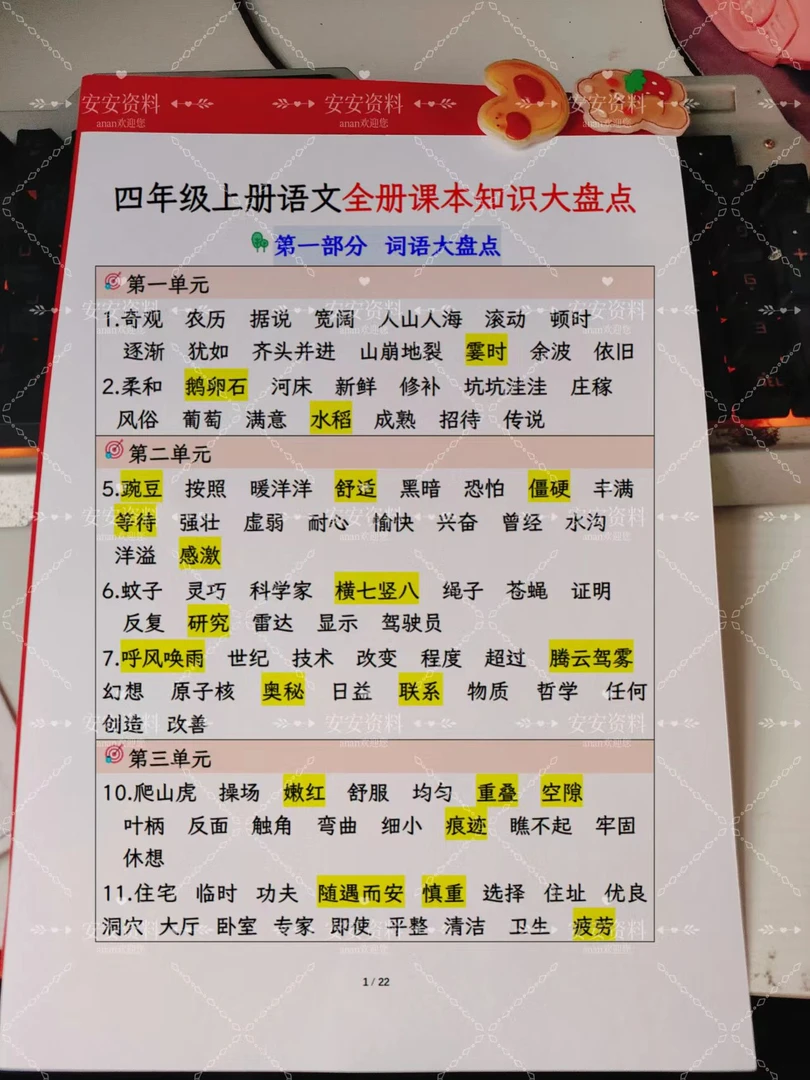 四年级上册语文全册课本知识大盘点
第一部分 词语大盘点
第一单元
1.奇观 农历 据说 宽阔 人山人海 滚动 顿时
逐渐 犹如 齐头并进 山崩地裂 霎时 余波 依旧
2.柔和 鹅卵石 河床 新鲜 修补 坑坑洼洼 庄稼
风俗 葡萄 满意 水稻 成熟 招待 传说
第二单元
5.豌豆 按照 暖洋洋 舒适 黑暗 恐怕 僵硬 丰满
等待 强壮 虚弱 耐心 愉快 兴奋 曾经 水沟
洋溢 感激
6.蚊子 灵巧 科学家 横七竖八 绳子 苍蝇 证明
反复 研究 雷达 显示 驾驶员
7.呼风唤雨 世纪 技术 改变 程度 超过 腾云驾雾
幻想 原子核 奥秘 日益 联系 物质 哲学 任何
创造 改善
第三单元
10.爬山虎 操场 嫩红 舒服 均匀 重叠 空隙
叶柄 反面 触角 弯曲 细小 痕迹 瞧不起 牢固
休想
11.住宅 临时 功夫 随遇而安 慎重 选择 住址 优良
洞穴 大厅 卧室 专家 即使 平整 清洁 卫生 疲劳
1 / 22
安安资料
anan欢迎您